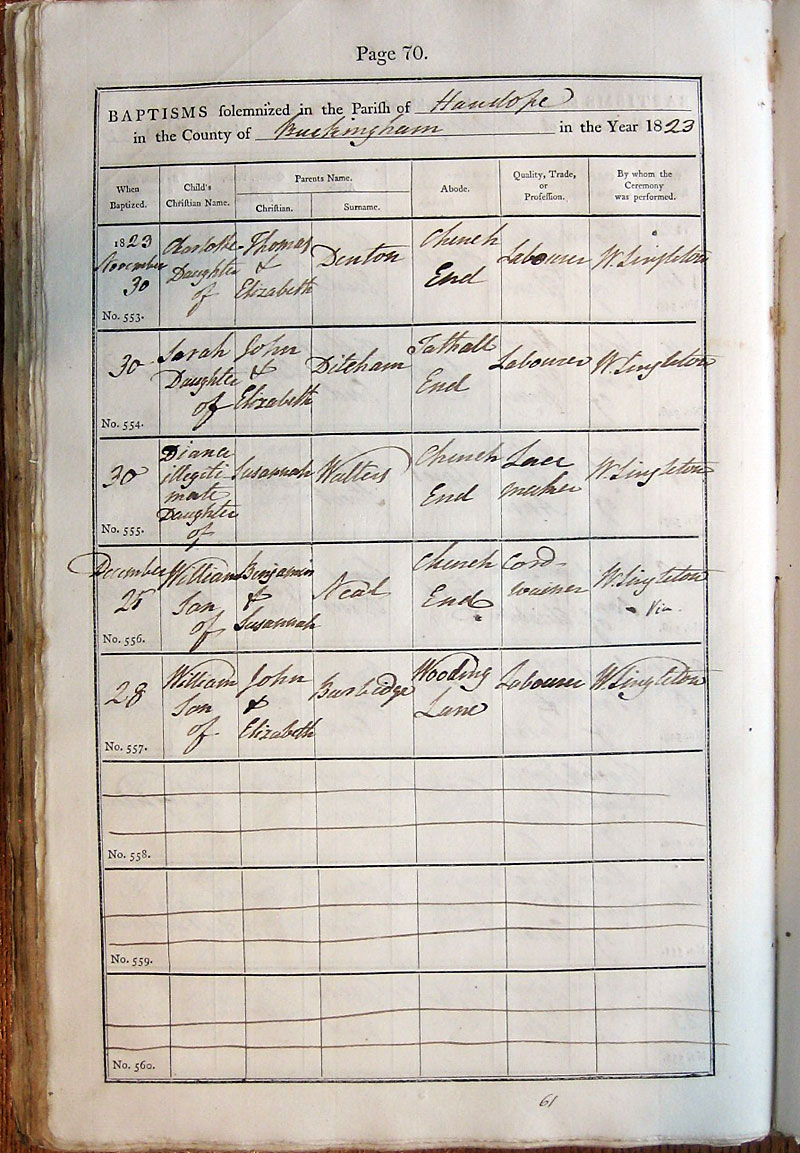 Page 70.
BAPTISMS solemnized in the Parish of Hanslope
in the County of Buckingham in the Year 1823
When Baptized. Child's Christian Name. Parents Name. Abode. Quality, Trade, or Profession. By whom the Ceremony was performed.
Christian. Surname.
1823
November
30
No. 553.
Charlotte
Daughter
of
Thomas
&
Elizabeth
Denton
Church
End
Labourer
W. Singleton
30
No. 554.
Sarah
Daughter
of
John
&
Elizabeth
Diteham
Tathall
End
Labourer
W. Singleton
30
No. 555.
Diana
illegiti
mate
Daughter
of
Susannah
Walters
Church
End
Lace
maker
W. Singleton
December
25
No. 556.
William
Son
of
Benjamin
&
Susannah
Neal
Church
End
Cord-
wainer
W. Singleton
- Vic -
28
No. 557.
William
Son
of
John
&
Elizabeth
Burbidge
Wooding
Lane
Labourer
W. Singleton
No. 558.
No. 559.
No. 560.
61